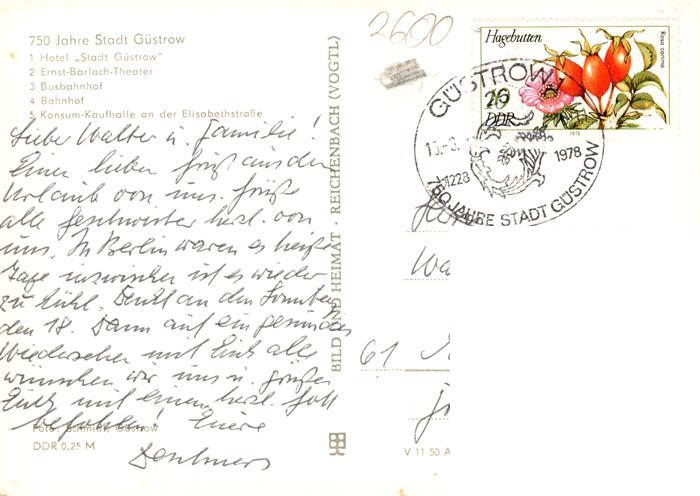 750 Jahre Stadt Güstrow
1 Hotel „Stadt Güstrow"
2 Ernst-Barlach-Theater
3 Busbahnhof
4 Bahnhof
5 Konsum-Kaufhalle an der Elisabethstraße
Lieber Walter u. Familie!
Einen lieben Gruß aus dem
Urlaub von uns. Grüße
alle Geschwister herzl. von
uns. In Berlin waren es heiße
Tage inzwischen ist es wieder
zu kühl. Denkt an den Sonntag
den 18. Dann auf ein gesundes
Wiedersehen mit Euch alle
wünschen wir uns u. grüßen
Euch mit einem herzl. Gott
befohlen! Eure
Foto: Schmidt, Güstrow
DDR 0,25 M
BILD UND HEIMAT · REICHENBACH (VOGTL)
2600
Hagebutten
Rosa canina
DDR
1978
GÜSTROW
1978
750 JAHRE STADT GÜSTROW
61
V 11 50 A